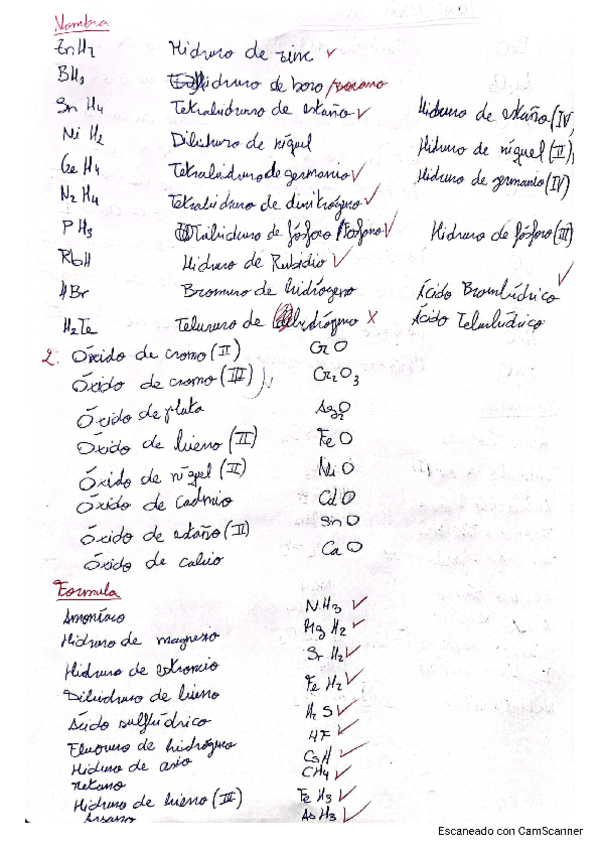 Nombra
ZnH2 Hidruro de zinc ✓
BH3 hidruro de boro /borano
SnH4 Tetrahidruro de estaño ✓ Hidruro de estaño (IV)
NiH2 Dihidruro de níquel Hidruro de níquel (II)
GeH4 Tetrahidruro de germanio ✓ Hidruro de germanio (IV)
N2H4 Tetrahidruro de dinitrógeno ✓
PH3 Trihidruro de fósforo / Fosfano ✓ Hidruro de fósforo (III)
RbH Hidruro de Rubidio ✓
HBr Bromuro de hidrógeno Ácido Bromhídrico ✓
H2Te Telururo de hidrógeno x Ácido Telurhídrico
2. Óxido de cromo (II) CrO
Óxido de cromo (III) Cr2O3
Óxido de plata Ag2O
Óxido de hierro (II) FeO
Óxido de níquel (II) NiO
Óxido de Cadmio CdO
Óxido de estaño (II) SnO
Óxido de calcio CaO
Formula
Amoníaco NH3 ✓
Hidruro de magnesio MgH2 ✓
Hidruro de estroncio SrH2 ✓
Dihidruro de hierro FeH2 ✓
Ácido sulfhídrico H2S ✓
Fluoruro de hidrógeno HF ✓
Hidruro de cesio CsH ✓
Metano CH4 ✓
Hidruro de hierro (III) FeH3 ✓
Arsano AsH3 ✓
Escaneado con CamScanner